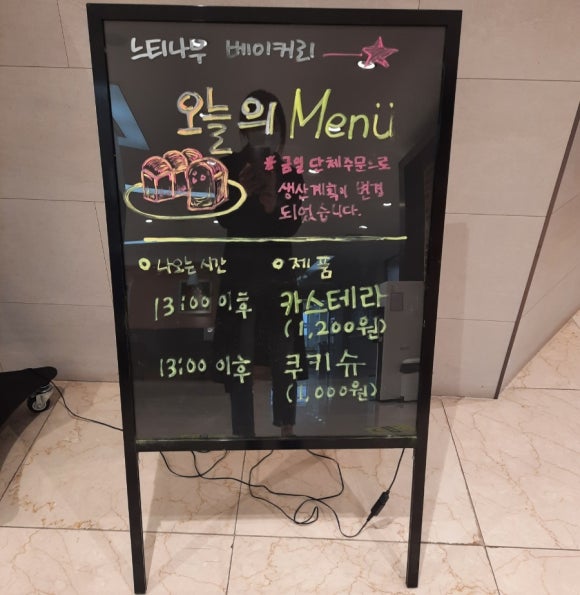 느티나무 베이커리
오늘의 Menü
* 금일 단체주문으로
생산계획이 변경
되었습니다.
나오는 시간 제품
13:00 이후 카스테라
(1,200원)
13:00 이후 쿠키슈
(1,000원)